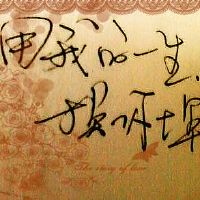 用我的一生
换你十年
The story of love